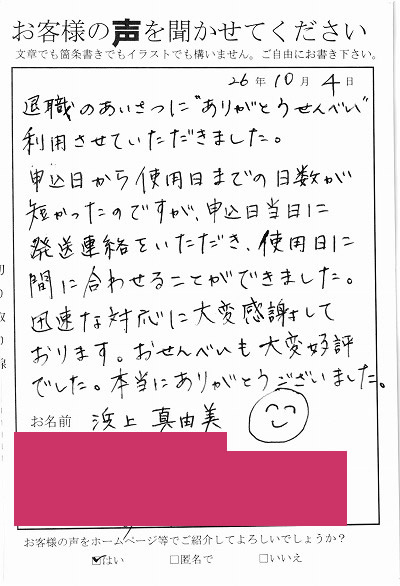 お客様の声を聞かせてください
文章でも箇条書きでもイラストでも構いません。ご自由にお書き下さい。
26年10月4日
退職のあいさつに"ありがとうせんべい"
利用させていただきました。
申込日から使用日までの日数が
短かったのですが、申込日当日に
発送連絡をいただき、使用日に
間に合わせることができました。
迅速な対応に大変感謝して
おります。おせんべいも大変好評
でした。本当にありがとうございました。
お名前 浜上 真由美
お客様の声をホームページ等でご紹介してよろしいでしょうか？
☑はい □匿名で □いいえ